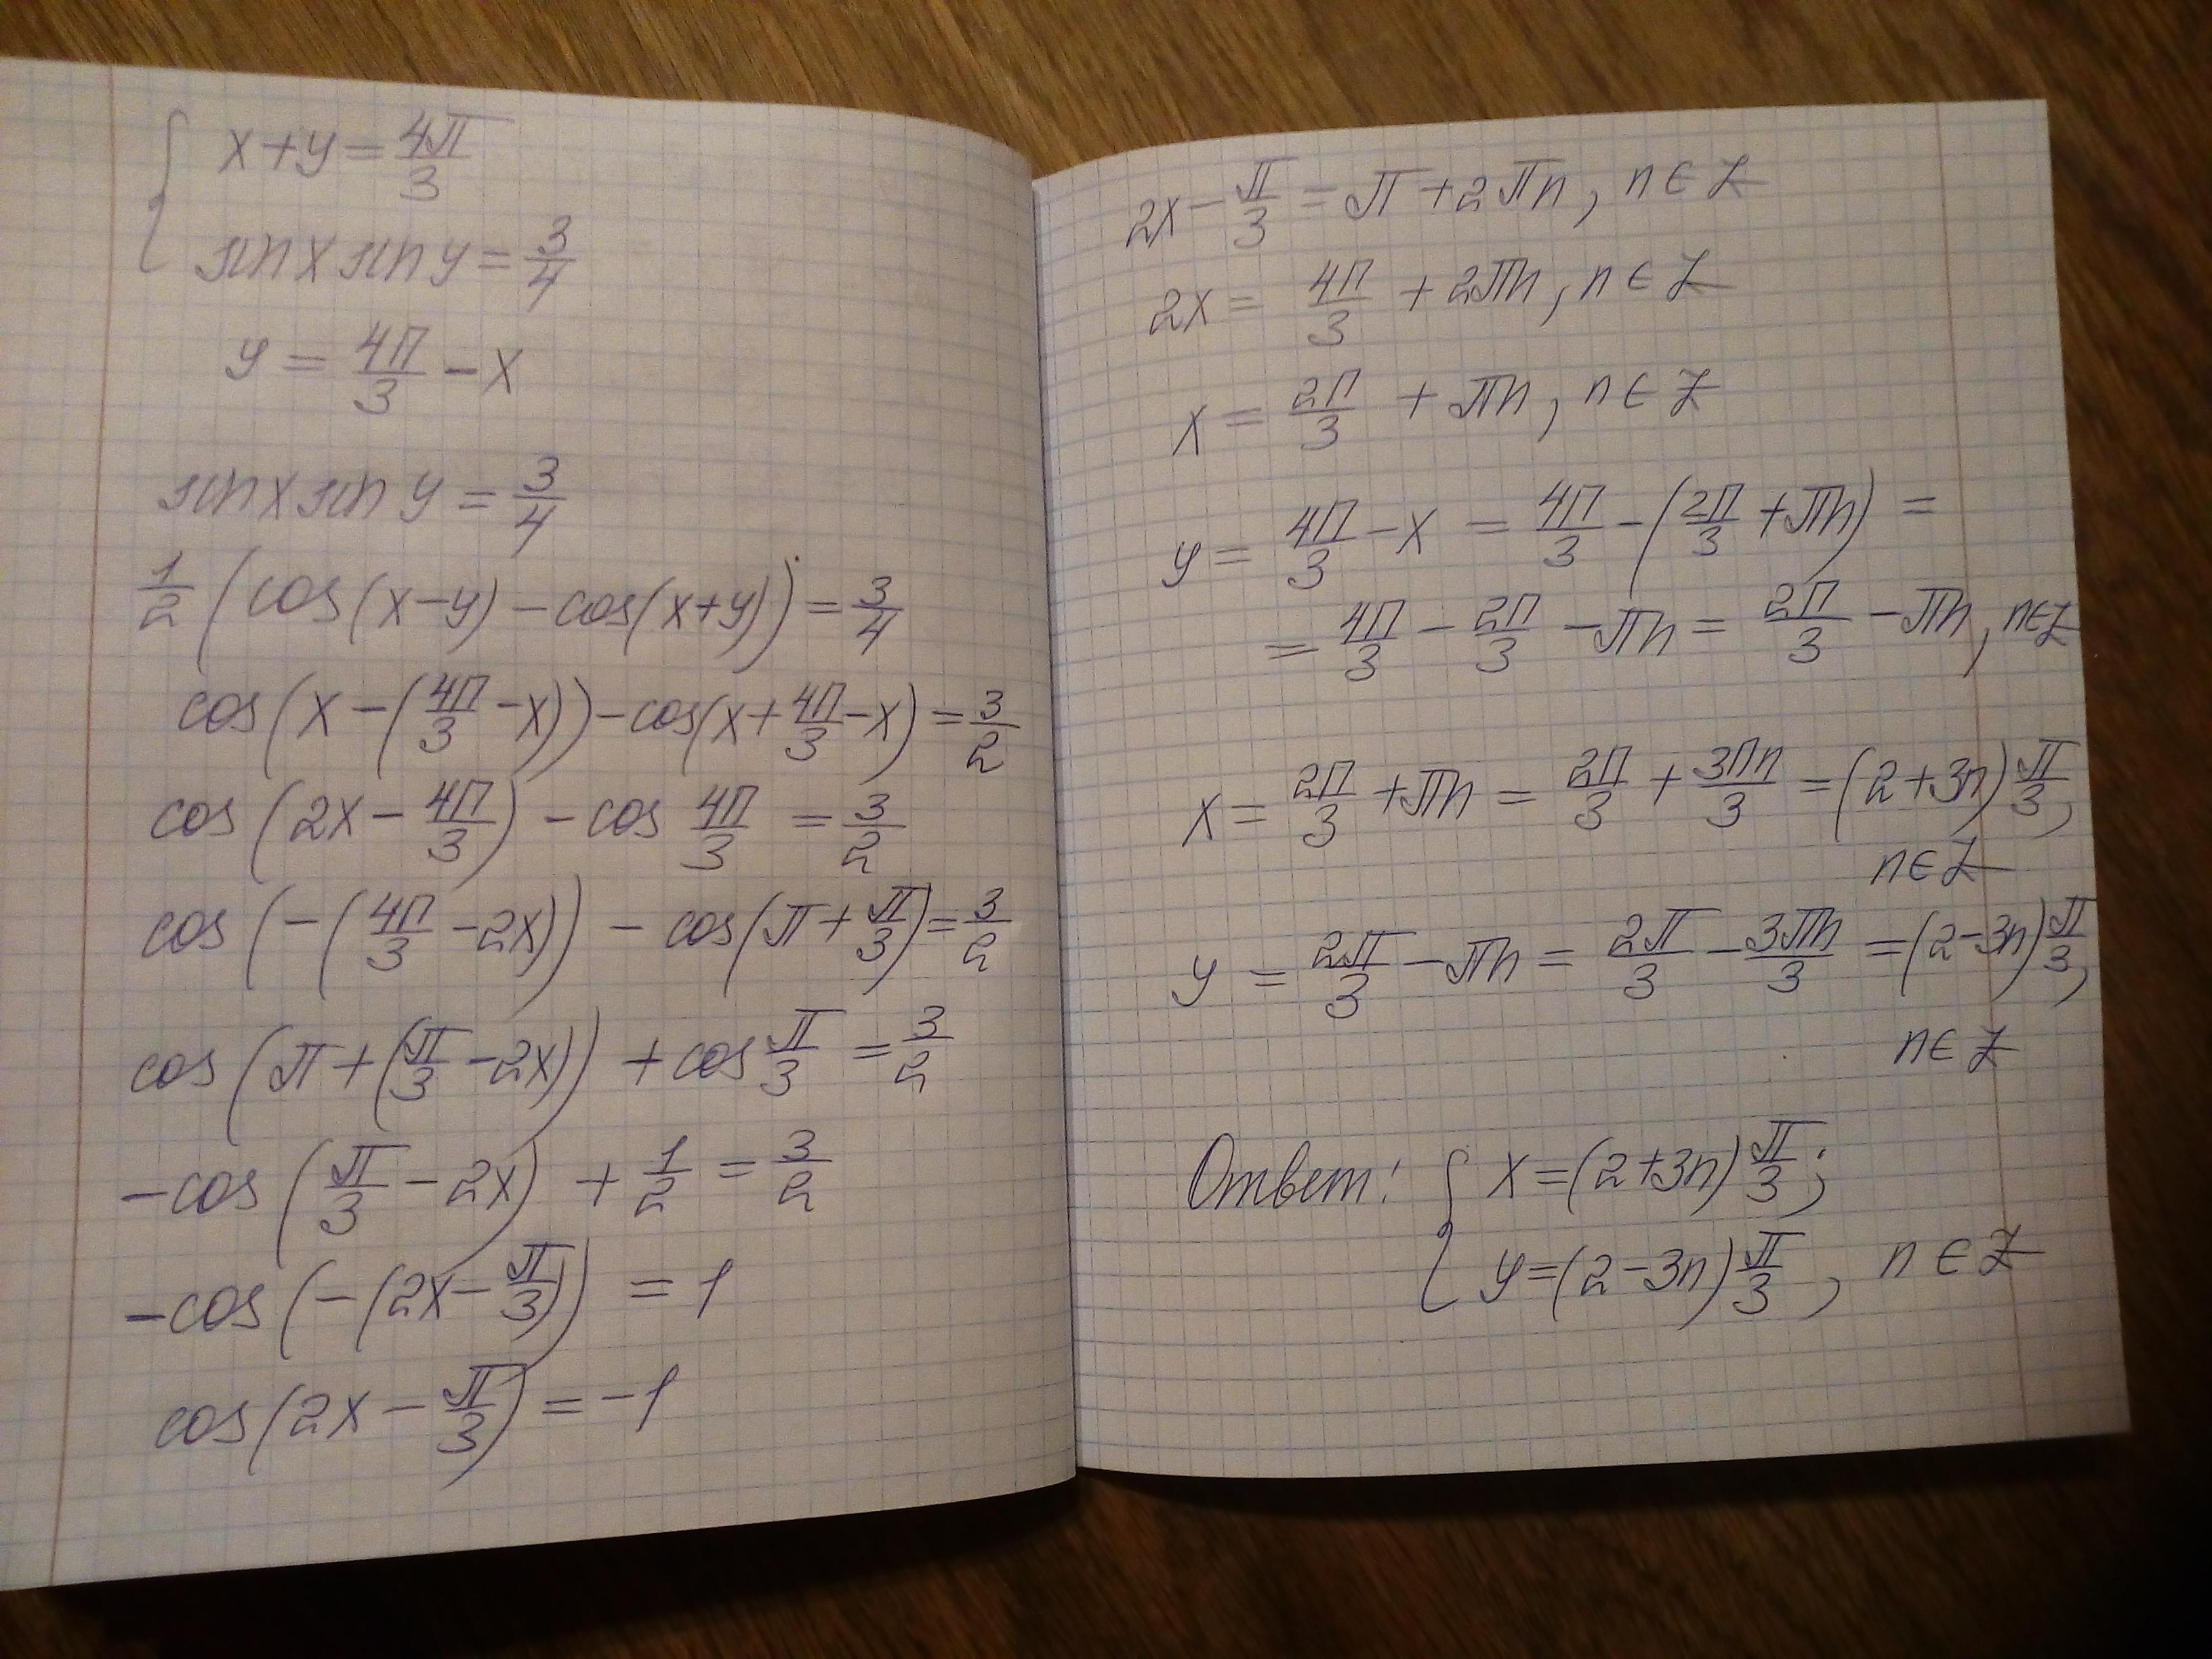 { x+y = 4π/3
sin x sin y = 3/4
y = 4π/3 − x
sin x sin y = 3/4
1/2 (cos(x−y) − cos(x+y)) = 3/4
cos(x − (4π/3 − x)) − cos(x + 4π/3 − x) = 3/2
cos(2x − 4π/3) − cos 4π/3 = 3/2
cos(−(4π/3 − 2x)) − cos(π + π/3) = 3/2
cos(π + (π/3 − 2x)) + cos π/3 = 3/2
−cos(π/3 − 2x) + 1/2 = 3/2
−cos(−(2x − π/3)) = 1
cos(2x − π/3) = −1
2x − π/3 = π + 2πn, n ∈ Z
2x = 4π/3 + 2πn, n ∈ Z
x = 2π/3 + πn, n ∈ Z
y = 4π/3 − x = 4π/3 − (2π/3 + πn) =
= 4π/3 − 2π/3 − πn = 2π/3 − πn, n ∈ Z
x = 2π/3 + πn = 2π/3 + 3πn/3 = (2+3n) π/3,
n ∈ Z
y = 2π/3 − πn = 2π/3 − 3πn/3 = (2−3n) π/3,
n ∈ Z
Ответ: { x = (2+3n) π/3;
y = (2−3n) π/3, n ∈ Z